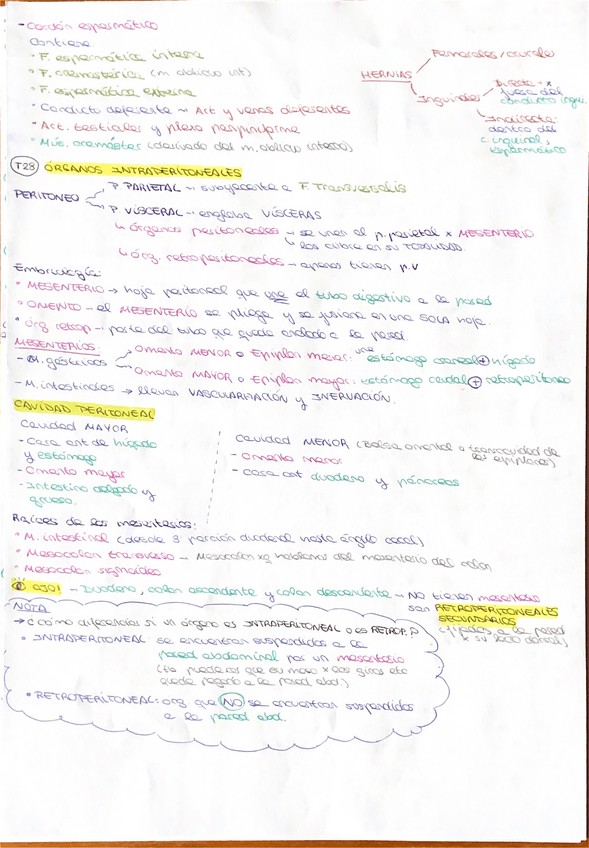 - Cordón espermático
Contiene
• F. espermática interna
• F. cremastérica (m. oblicuo int)
• F. espermática externa
• Conducto deferente ~ Art y venas deferentes
• Art. testicular y plexo pampiniforme
• Mús. cremáster (derivado del m. oblicuo interno)
HERNIAS
Femorales / crurales
Inguinales
Directa - x
fuera del
conducto ingui.
Indirecta
dentro del
c. inguinal,
espermático
T28 ÓRGANOS INTRAPERITONEALES
PERITONEO
P PARIETAL ~ subyacente a F. Transversalis
P. VISCERAL - engloba VÍSCERAS
↳ órganos peritoneales - se unen al p. parietal x MESENTERIO
↳ los cubre en su TOTALIDAD
↳ órg. retroperitoneales - apenas tienen p.v
Embriología:
• MESENTERIO → hoja peritoneal que une el tubo digestivo a la pared
• OMENTO - el MESENTERIO se pliega y se fusiona en una SOLA hoja.
• Org retrop - parte del tubo que queda anclado a la pared.
MESENTERIOS:
- M. gástricos
Omento MENOR o Epiplon menor: une estómago craneal + hígado
Omento MAYOR o Epiplon mayor: estómago caudal + retroperitoneo
- M. intestinales → llevan VASCULARIZACIÓN y INERVACIÓN.
CAVIDAD PERITONEAL
Cavidad MAYOR
- Cara ant de hígado
y estómago
- Omento mayor
- Intestino delgado y
grueso.
Cavidad MENOR (Bolsa omental o transcavidad de
los epiplones)
- Omento menor
- cara ant duodeno y páncreas
Raíces de los mesenterios:
• M. intestinal (desde 3 porción duodenal hasta ángulo cecal)
• Mesocolon transverso - Mesocolon xq hablamos del mesenterio del colon
• Mesocolon sigmoideo
OJO! - Duodeno, colon ascendente y colon descendente - NO tienen mesenterio
son RETROPERITONEALES
SECUNDARIOS
(fijados a la pared
x su lado dorsal)
NOTA
→ ¿cómo diferencias si un órgano es INTRAPERITONEAL o es RETROP.?
• INTRAPERITONEAL se encuentran suspendidos a la
pared abdominal por un mesenterio
quede pegado a la pared abd.)
• RETROPERITONEAL: org que NO se encuentran suspendidos
a la pared abd.